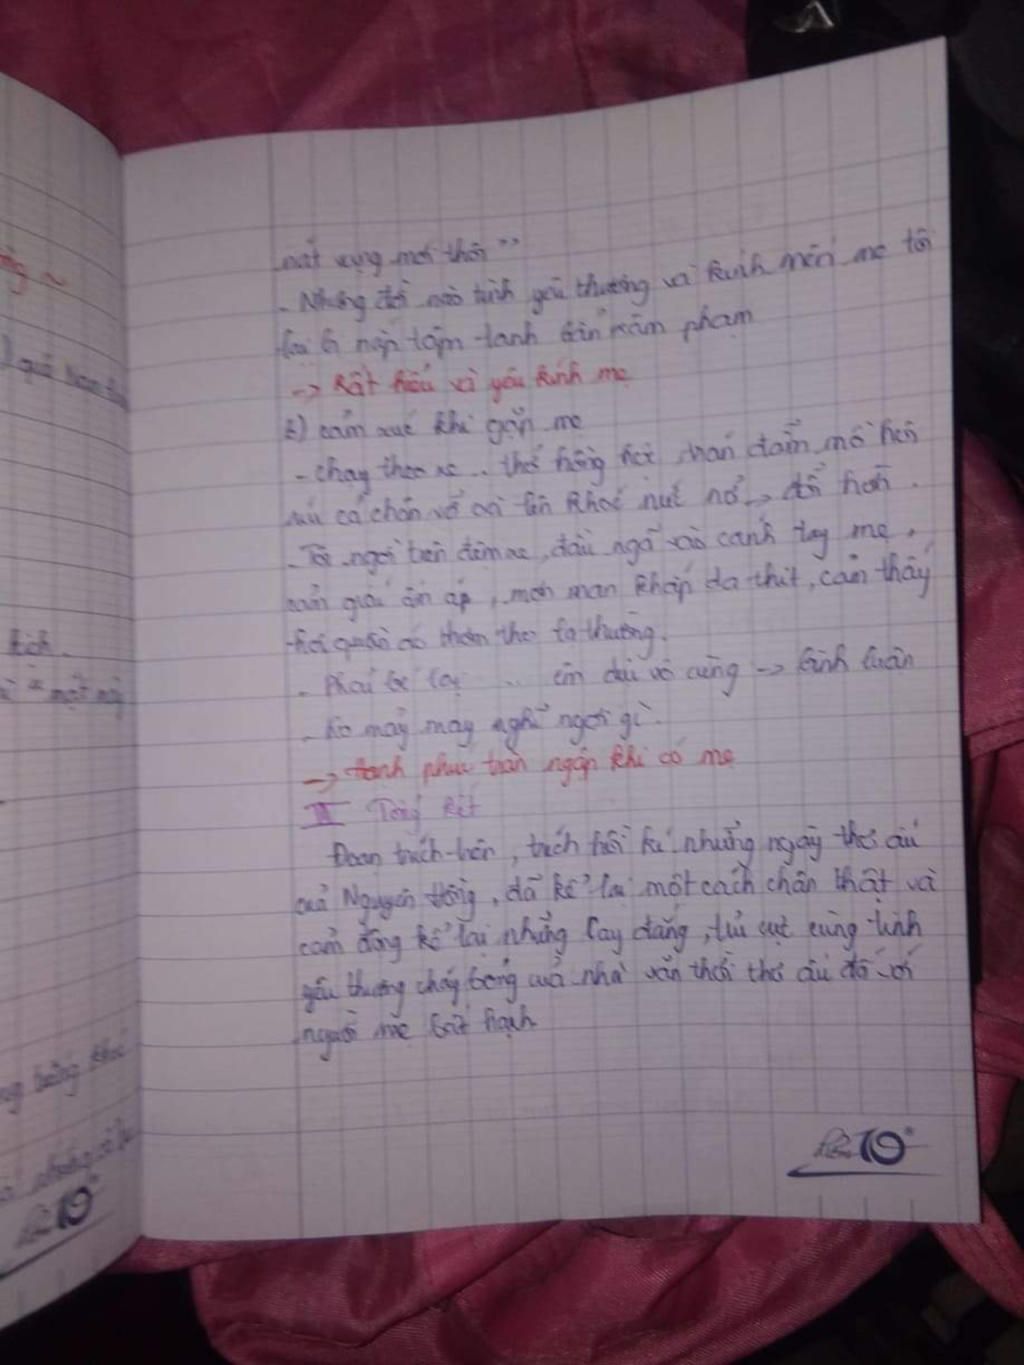 nát vụn mới thôi”
- Nhưng đời nào tình yêu thương và kính mến mẹ tôi
lại bị tâm tanh bẩn xâm phạm
-> Rất hiểu và yêu kính mẹ
b) cảm xúc khi gặp mẹ
- chạy theo xe .. thở hồng hộc trán đẫm mồ hôi
ríu cả chân và oà lên khóc nức nở -> dỗi hờn.
- Tôi ngồi trên đệm xe, đầu ngả vào cánh tay mẹ,
cảm giác ấm áp, mơn man khắp da thịt, cảm thấy
hơi quần áo thơm tho lạ thường.
- Phải bé lại .. êm dịu vô cùng -> bình luận
- ko mảy may nghĩ ngợi gì.
-> hạnh phúc tràn ngập khi có mẹ
III Tổng kết
Đoạn trích trên, trích hồi kí những ngày thơ ấu
của Nguyên Hồng, đã kể lại một cách chân thật và
cảm động kể lại những cay đắng, tủi cực cùng tình
yêu thương cháy bỏng của nhà văn thời thơ ấu đối với
người mẹ bất hạnh
10